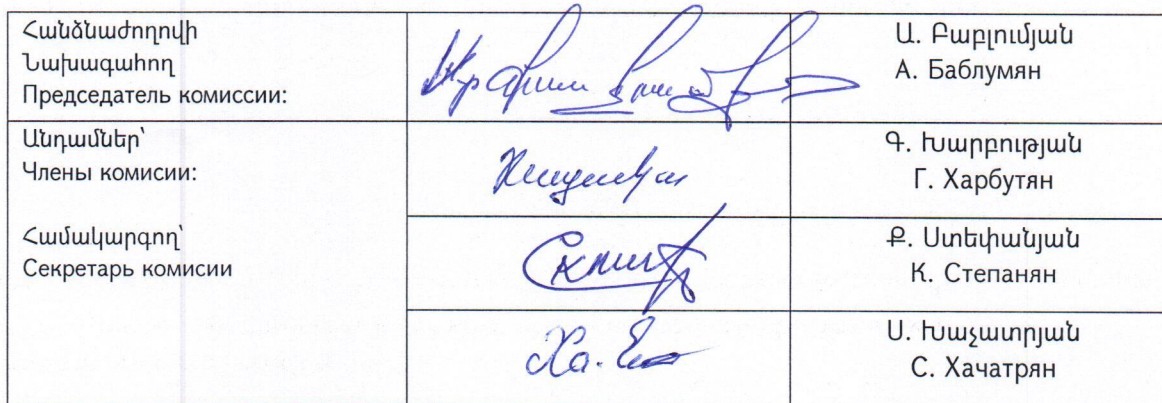 Հանձնաժողովի
Նախագահող
Председатель комиссии:
Ա. Բաբլումյան
А. Баблумян
Անդամներ՝
Члены комисии:
Գ. Խարբության
Г. Харбутян
Համակարգող՝
Секретарь комисии
Ք. Ստեփանյան
К. Степанян
Ս.Խաչատրյան
С. Хачатрян